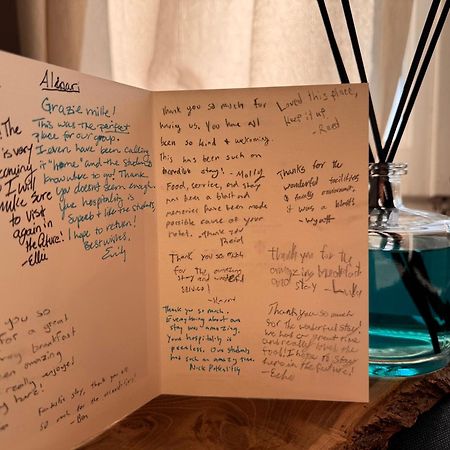 Alspari
The
is very
I will
make sure
to visit
again in
the future!
-Ellie
Grazie mille!
This was the perfect
place for our group.
I even have been calling
it "home" and the students
know where to go! Thank
you doesn't seem enough.
The hospitality is
superb + like the students,
I hope to return!
Best wishes,
Emily
you so
for a great
breakfast
been amazing
really enjoyed
here!
Fantastic stay, thank you all
so much for the
-Ben
Thank you so much for
having us. You have all
been so kind & welcoming.
This has been such an
incredible stay! - Molly
Food, service, and stay
has been a blast and
memories have been made
possible cause of your
hotel. Thank you
David
Thank you so much
for the amazing
stay and
service!
Thank you so much.
Everything about our
stay was amazing.
Your hospitality is
peerless. Our students
had such an amazing time.
Nick
Loved this place,
keep it up.
- Reed
Thanks for the
wonderful facilities
& family environment,
it was a blast
-Wyatt
thank you for the
amazing breakfast
and stay -Luke
Thank you so much
for the wonderful stay!
we had a great time
and really loved the
food. I hope to stay
again in the future!
-Echo